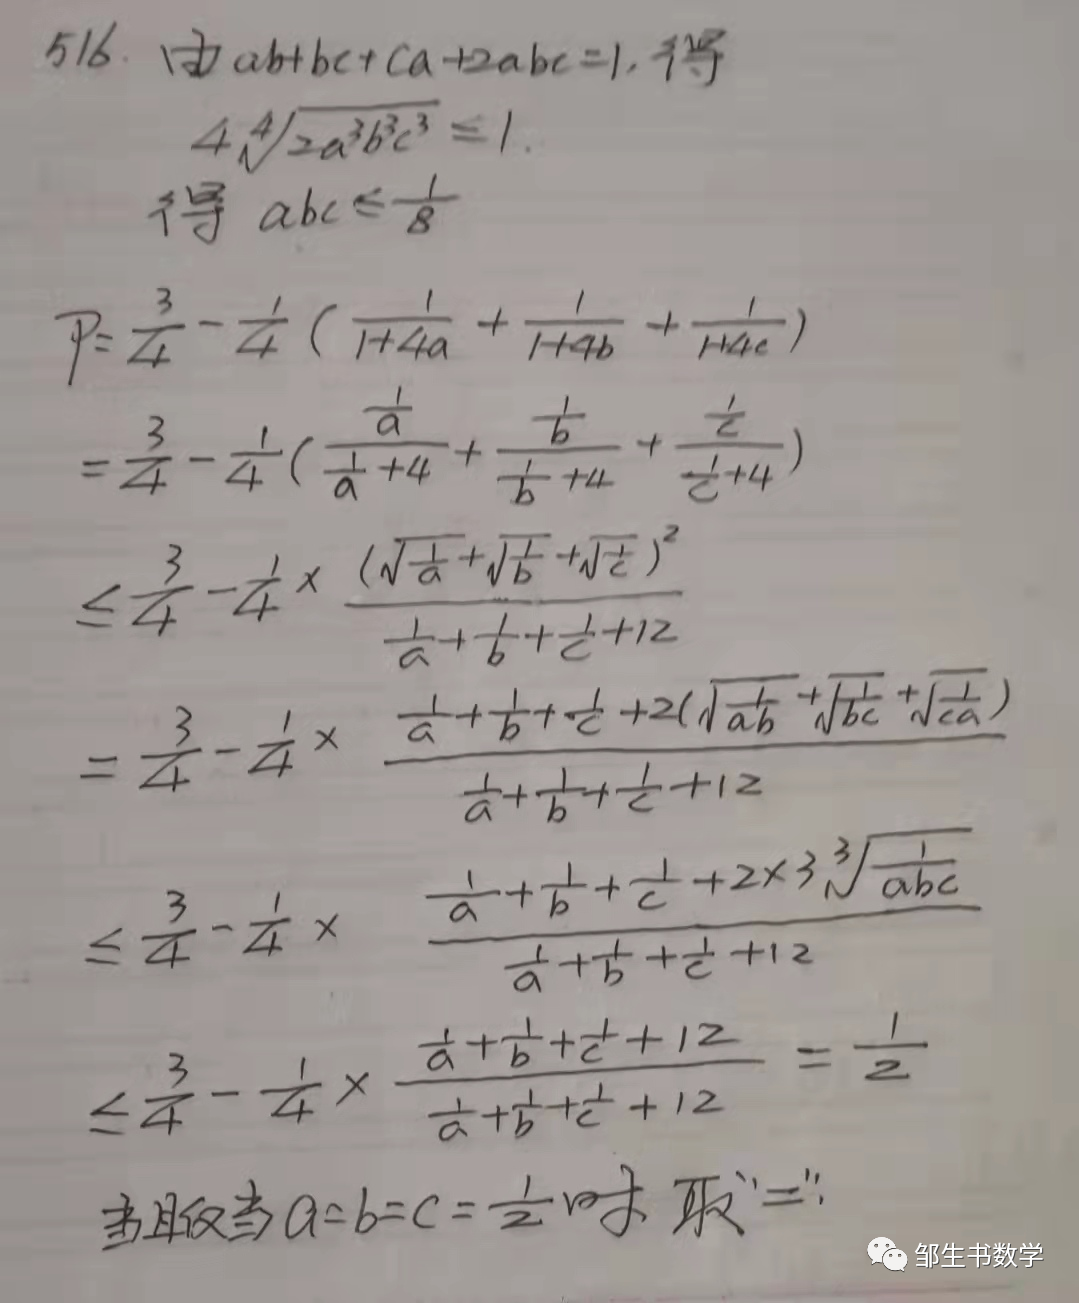 516. 由ab+bc+ca+2abc=1,得
4∜(2a³b³c³) ≤ 1.
得 abc ≤ 1/8
P = 3/4 - 1/4 ( 1/(1+4a) + 1/(1+4b) + 1/(1+4c) )
= 3/4 - 1/4 ( (1/a)/(1/a+4) + (1/b)/(1/b+4) + (1/c)/(1/c+4) )
≤ 3/4 - 1/4 × (√(1/a)+√(1/b)+√(1/c))²/(1/a+1/b+1/c+12)
= 3/4 - 1/4 × (1/a+1/b+1/c+2(√(1/ab)+√(1/bc)+√(1/ca)))/(1/a+1/b+1/c+12)
≤ 3/4 - 1/4 × (1/a+1/b+1/c+2×3∛(1/abc))/(1/a+1/b+1/c+12)
≤ 3/4 - 1/4 × (1/a+1/b+1/c+12)/(1/a+1/b+1/c+12) = 1/2
当且仅当a=b=c=1/2时 取"=".
邹生书数学